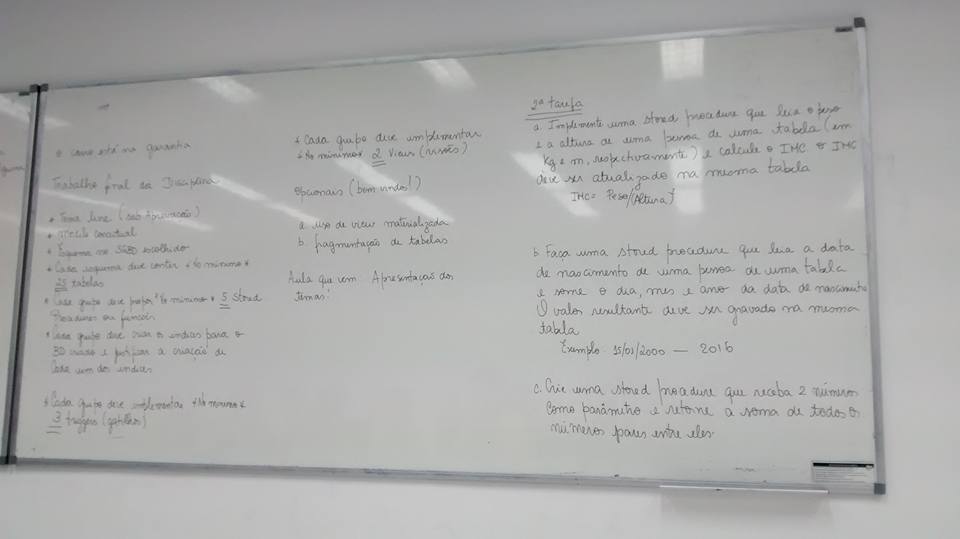 o carro está na garantia
Trabalho final da Disciplina
* Tema livre (sob Aprovação)
* Modelo conceitual
* Esquema no SGBD escolhido
* Cada esquema deve conter * No mínimo *
25 tabelas
* Cada grupo deve propor * No mínimo * 5 Stored
Procedures ou funções
* Cada grupo deve criar os índices para o
BD criado e justificar a criação de
Cada um dos índices
* Cada grupo deve implementar * No mínimo *
3 triggers (gatilhos)
* Cada grupo deve implementar
* No mínimo * 2 Views (visões)
Opcionais (bem vindos!)
a. uso de view materializada
b. fragmentação de tabelas
Aula que vem Apresentação dos
temas!
2ª tarefa
a. Implemente uma stored procedure que leia o peso
e a altura de uma pessoa de uma tabela (em
kg e m, respectivamente) e calcule o IMC. O IMC
deve ser atualizado na mesma tabela
IMC = Peso/(Altura)²
b. Faça uma stored procedure que leia a data
de nascimento de uma pessoa de uma tabela
e some o dia, mes e ano da data de nascimento
O valor resultante deve ser gravado na mesma
tabela
Exemplo: 15/01/2000 — 2016
c. Crie uma stored procedure que receba 2 números
como parâmetro e retorne a soma de todos os
números pares entre eles.